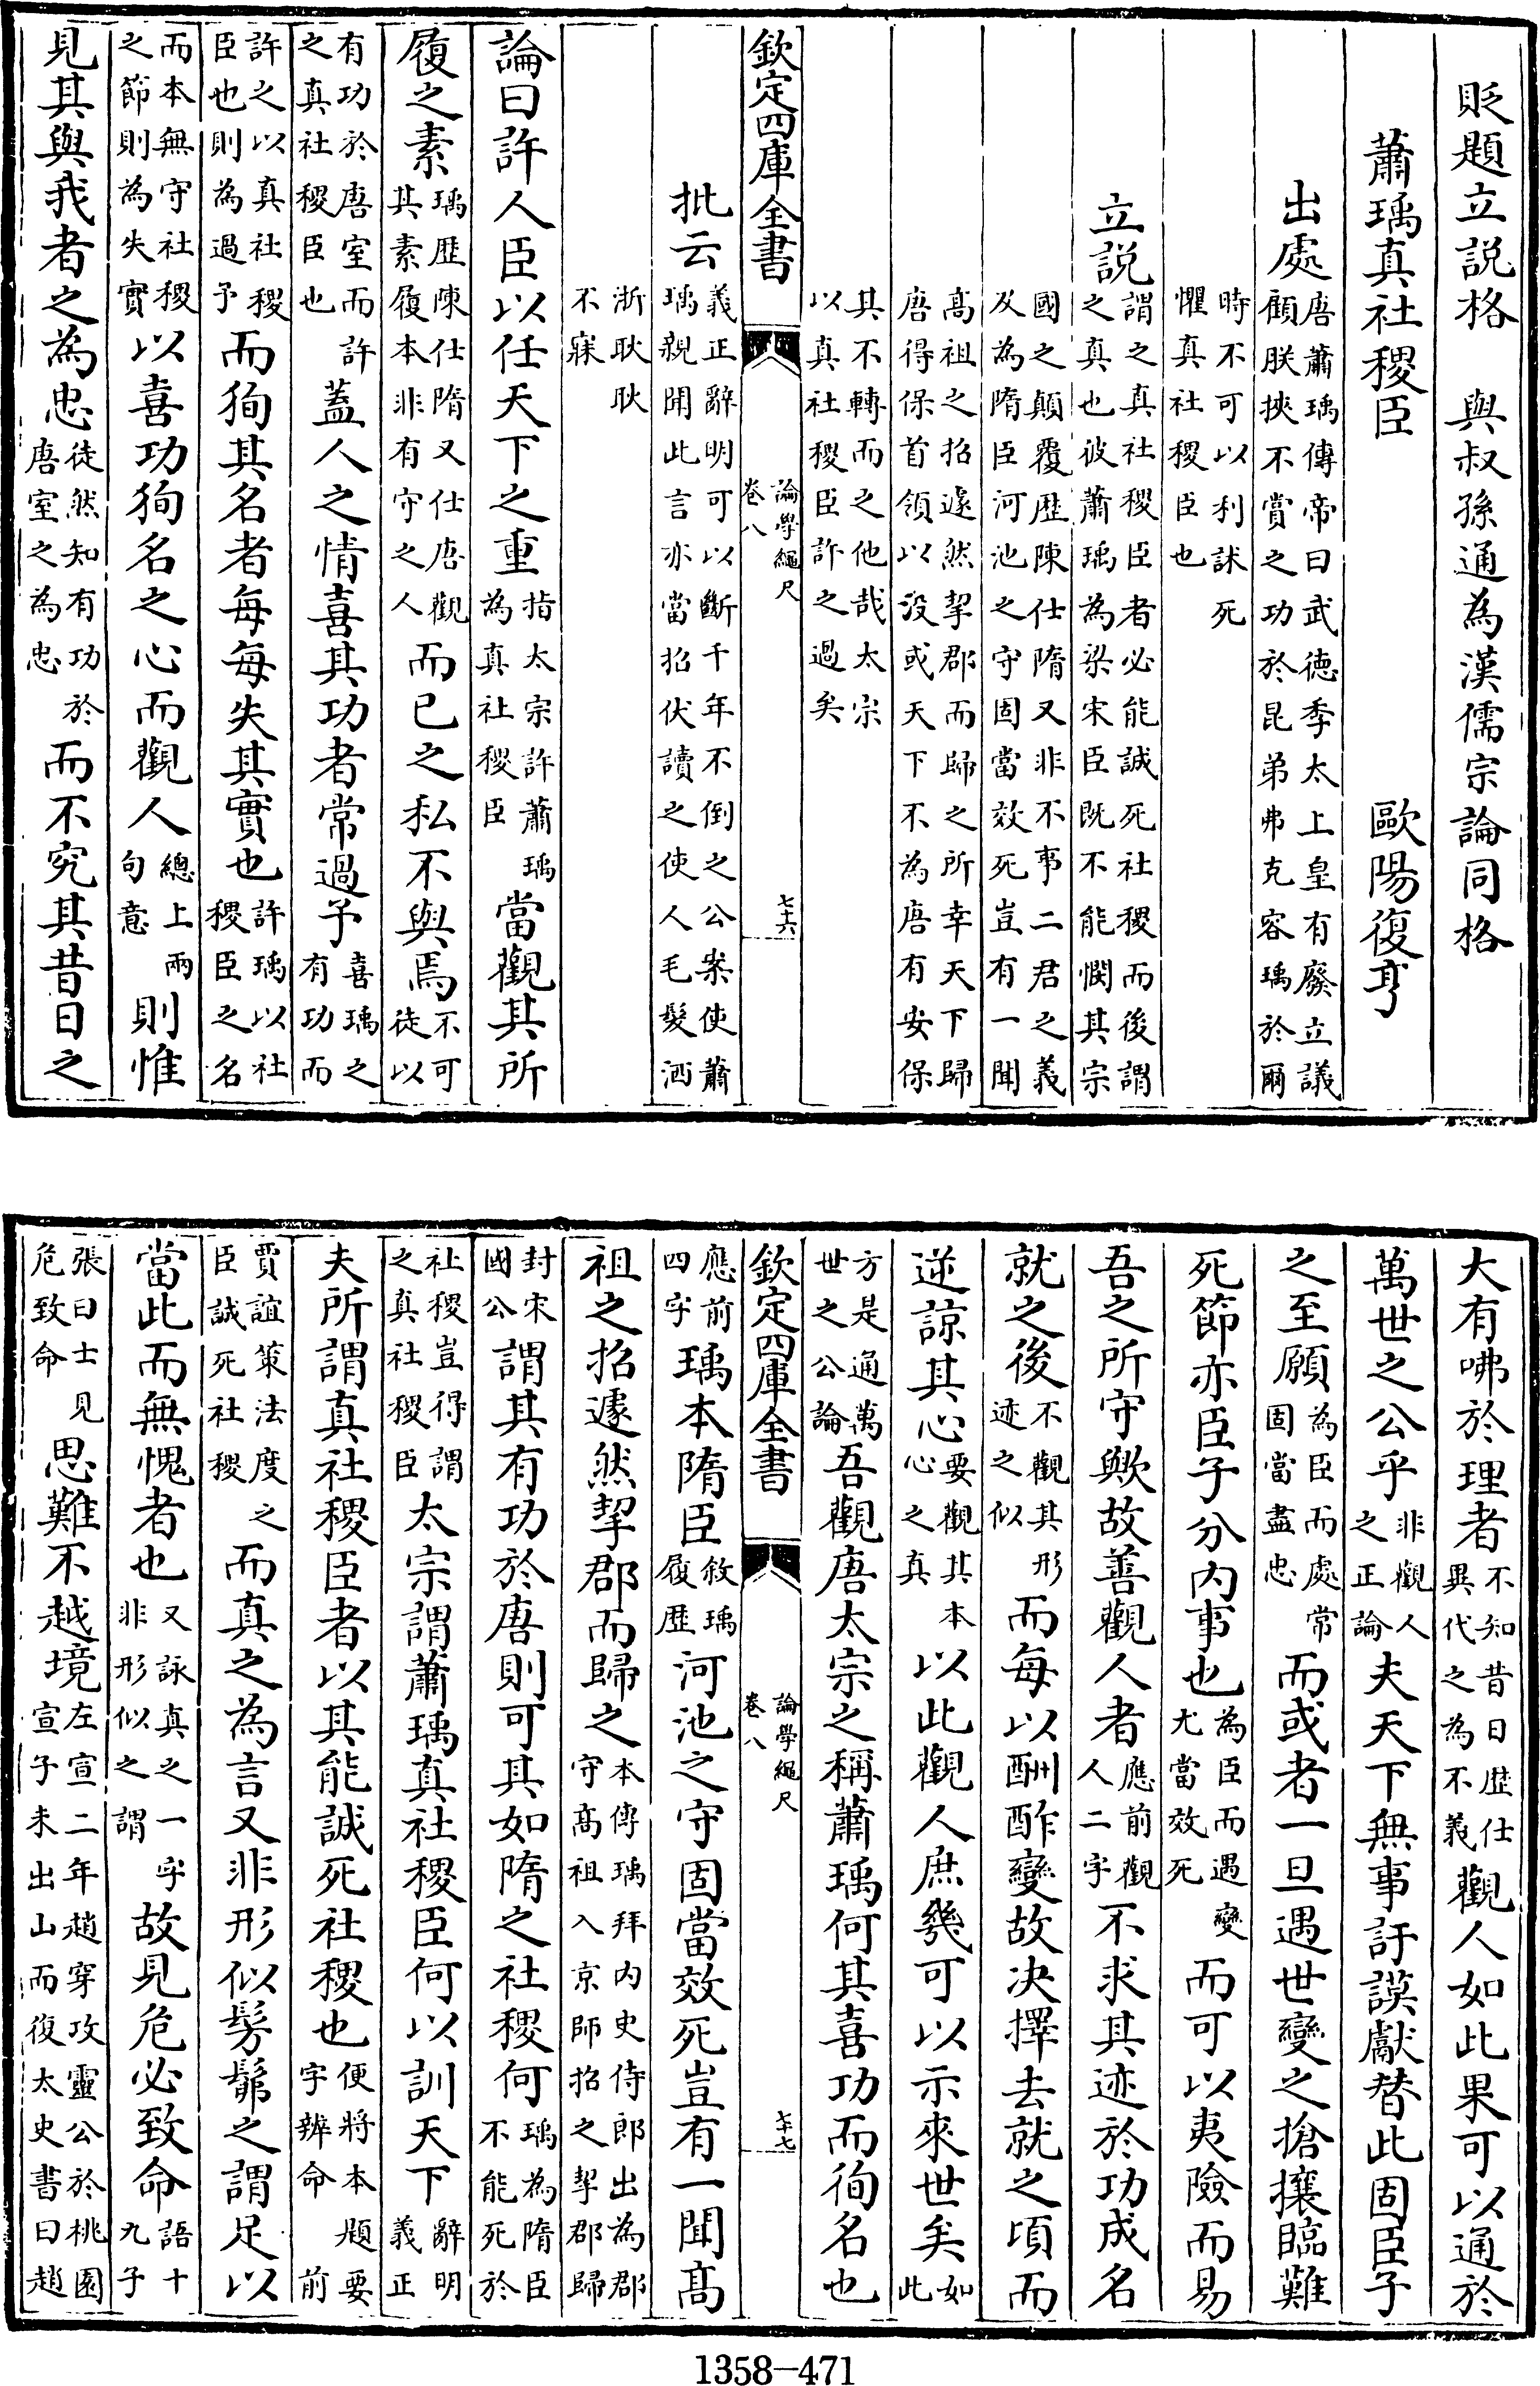 貶題立説格　與叔孫通為漢儒宗論同格
蕭瑀真社稷臣　歐陽復亨
出處唐蕭瑀傳帝曰武徳季太上皇有廢立議顧朕挾不賞之功於昆弟弗克容瑀於爾
時不可以利訹死懼真社稷臣也
立説謂之真社稷臣者必能誠死社稷而後謂之真也彼蕭瑀為梁宋臣既不能憫其宗
國之顛覆歴陳仕隋又非不事二君之義及為隋臣河池之守固當效死豈有一聞
髙祖之招遽然挈郡而歸之所幸天下歸唐得保首領以没或天下不為唐有安保
其不轉而之他哉太宗以真社稷臣許之過矣
欽定四庫全書
論學繩尺
卷八
七十六
批云義正辭明可以斷千年不倒之公案使蕭瑀親聞此言亦當招伏讀之使人毛髮洒
浙耿耿不寐
論曰許人臣以任天下之重指太宗許蕭瑀為真社稷臣當觀其所
履之素瑀歴陳仕隋又仕唐觀其素履本非有守之人而已之私不與焉不可徒以
有功於唐室而許之真社稷臣也蓋人之情喜其功者常過予喜瑀之有功而
許之以真社稷臣也則為過予而狥其名者每每失其實也許瑀以社稷臣之名
而本無守社稷之節則為失實以喜功狥名之心而觀人總上兩句意則惟
見其與我者之為忠徒然知有功於唐室之為忠而不究其昔日之
大有咈於理者不知昔日歴仕異代之為不義觀人如此果可以通於
萬世之公乎非觀人之正論夫天下無事訏謨獻替此固臣子
之至願為臣而處常固當盡忠而或者一旦遇世變之搶攘臨難
死節亦臣子分内事也為臣而遇變尤當效死而可以夷險而易
吾之所守歟故善觀人者應前觀人二字不求其迹於功成名
就之後不觀其形迹之似而每以酬酢變故决擇去就之頃而
逆諒其心要觀其本心之真以此觀人庶幾可以示來世矣如此
方是通萬世之公論吾觀唐太宗之稱蕭瑀何其喜功而徇名也
欽定四庫全書
論學繩尺
卷八
七十七
應前四字瑀本隋臣敘瑀履歴河池之守固當效死豈有一聞髙
祖之招遽然挈郡而歸之本傳瑀拜内史侍郎出為郡守髙祖入京師招之挈郡歸
封宋國公謂其有功於唐則可其如隋之社稷何瑀為隋臣不能死於
社稷豈得謂之真社稷臣太宗謂蕭瑀真社稷臣何以訓天下辭明義正
夫所謂真社稷臣者以其能誠死社稷也便將本題要字辨命前
賈誼策法度之臣誠死社稷而真之為言又非形似髣髴之謂足以
當此而無愧者也又詠真之一字非形似之謂故見危必致命語十九子
張曰士見危致命思難不越境左宣二年趙穿攻靈公於桃園宣子未出山而復太史書曰趙
1358-471